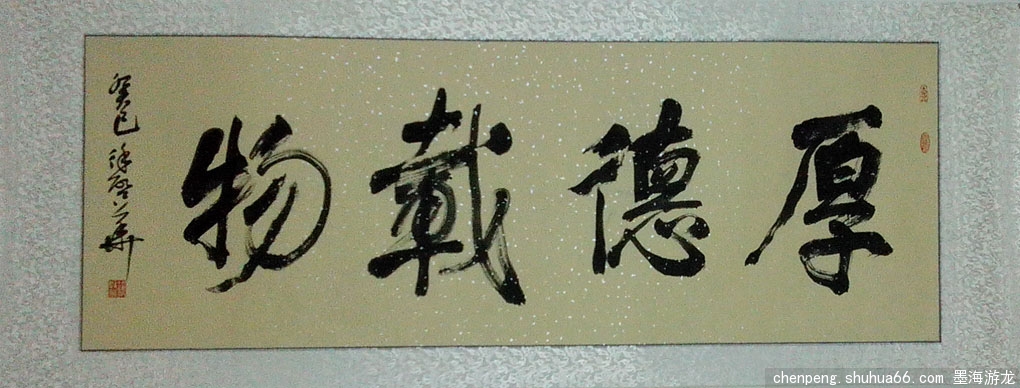 厚德載物
癸巳 徐啓
chenpeng.shuhua66.com 墨海游龙